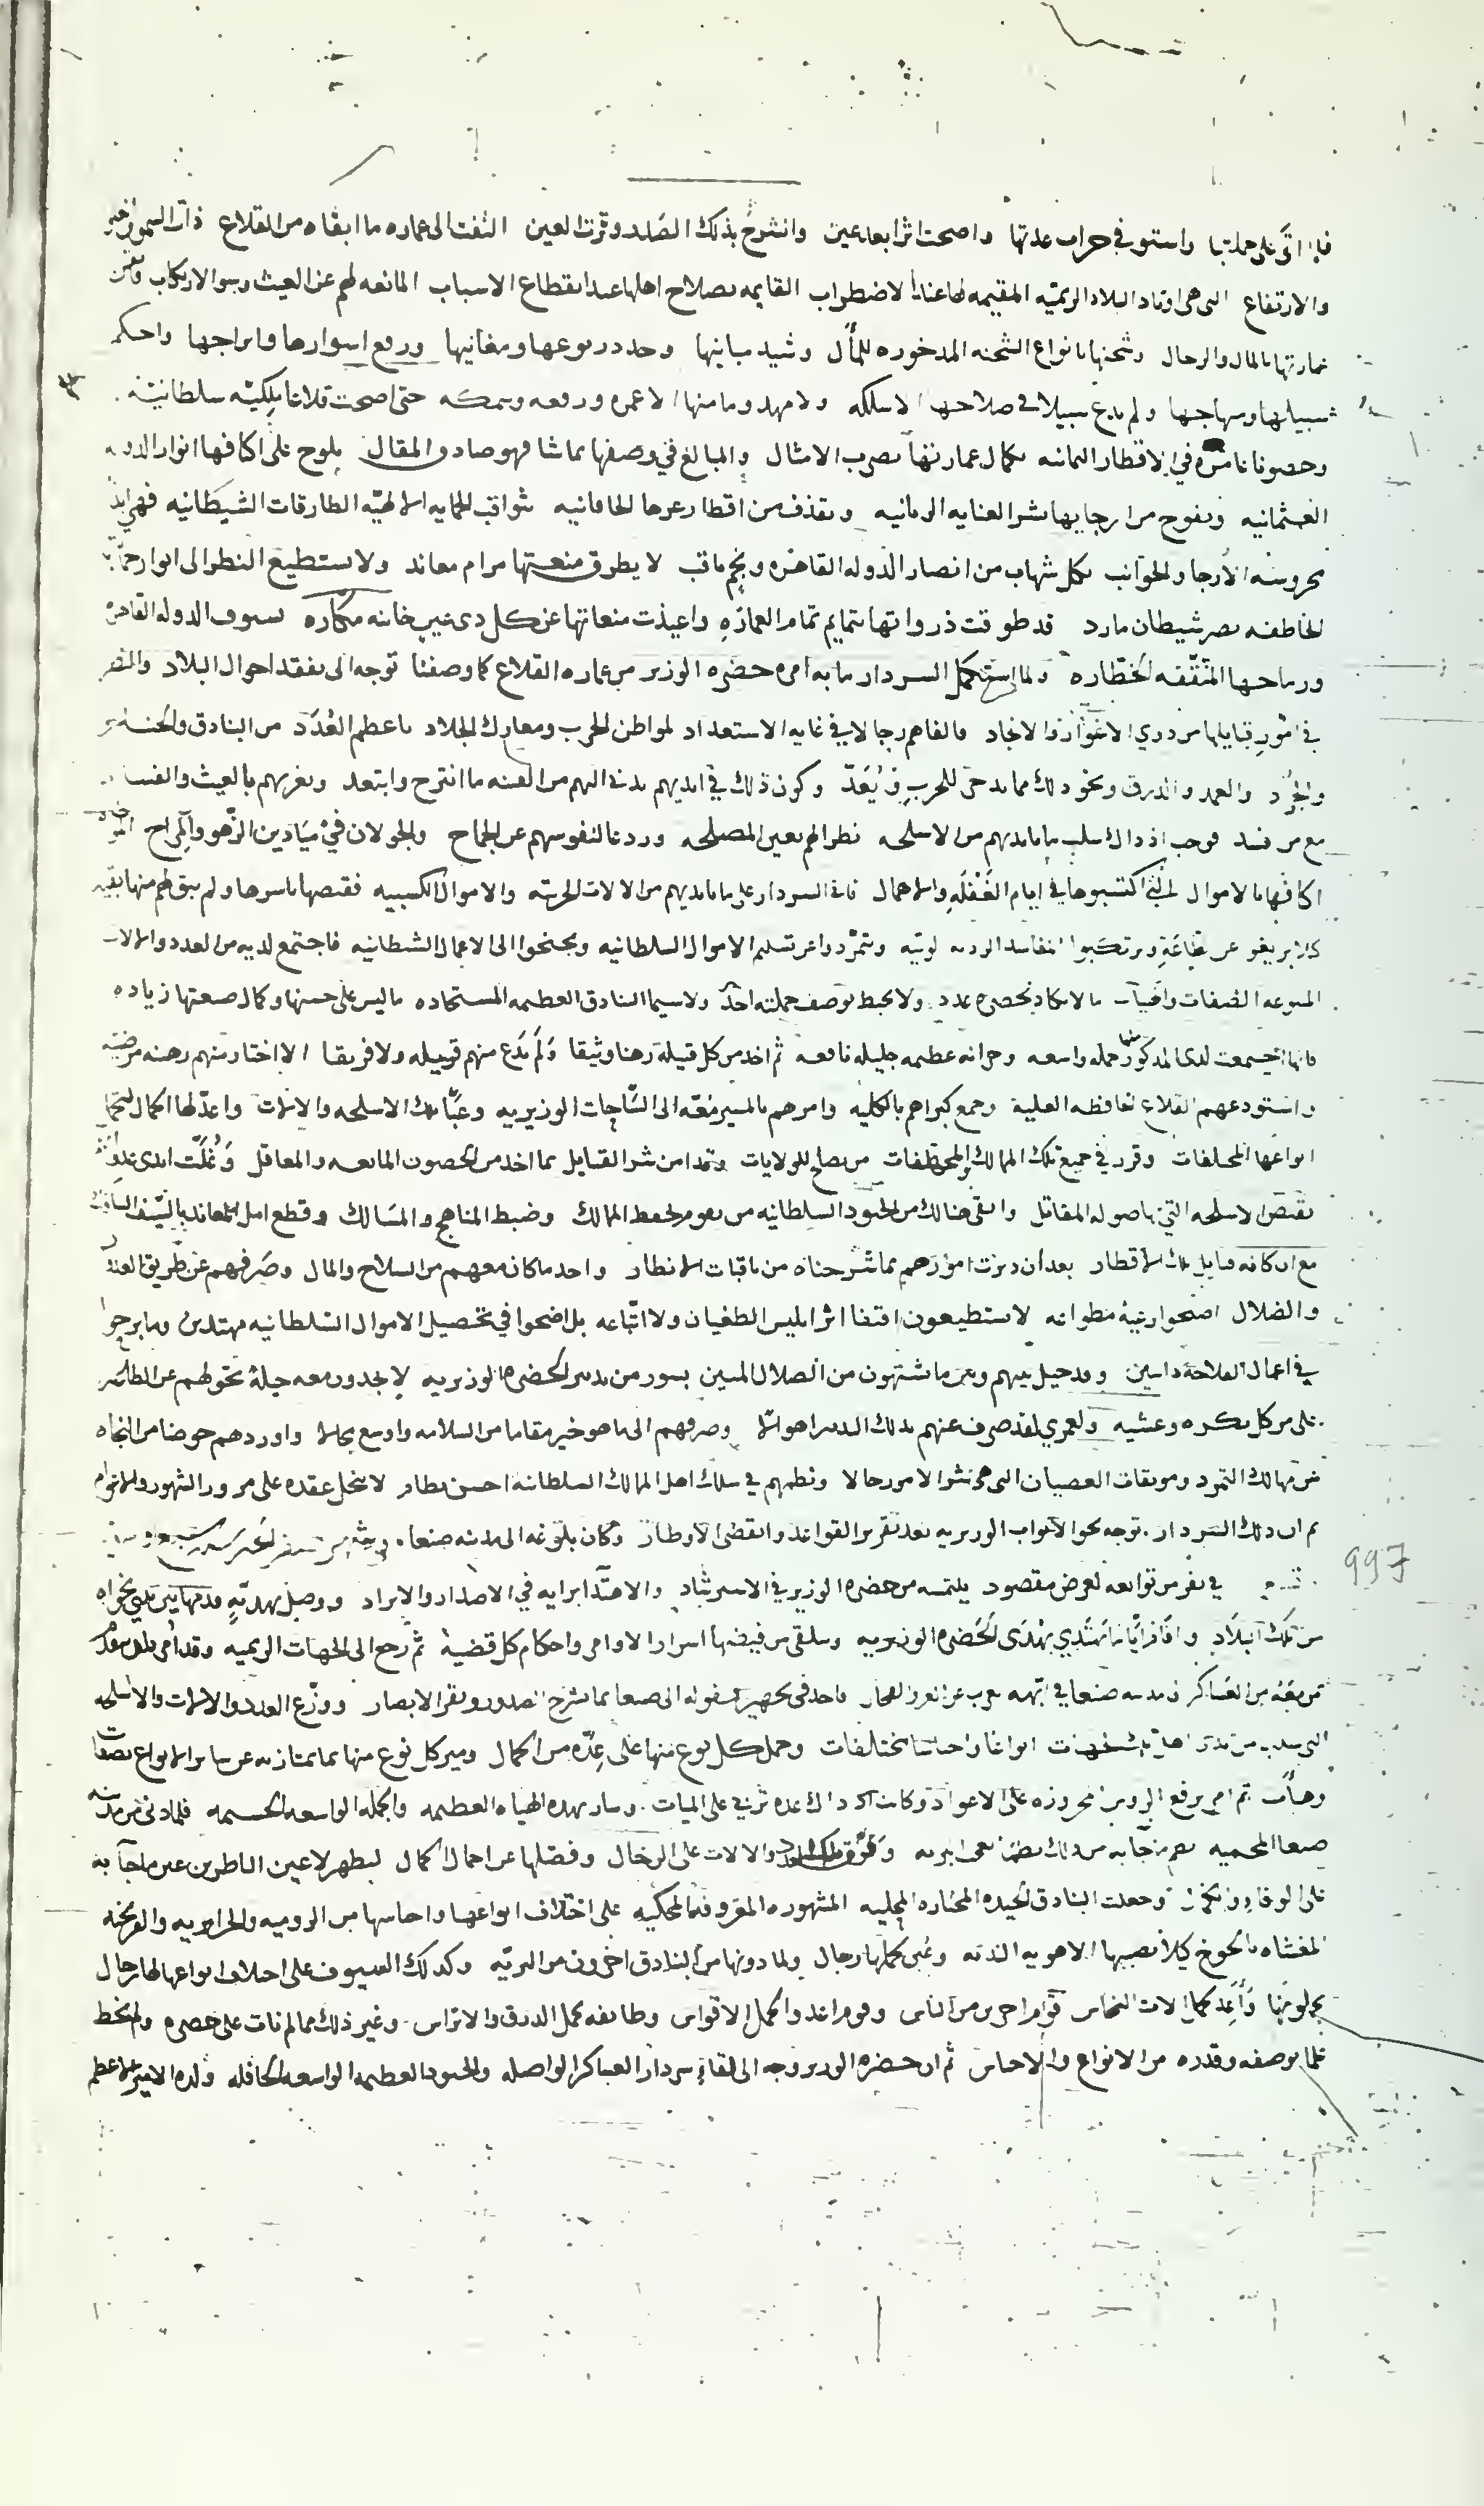 فلما اتى على جملتها واستوفى خراب عدتها واصبحت اثرا بعد عين وانشرح بذلك الصدر وقرت العين التفت الى عماره ما ابقاه من القلاع ذات السمو
والارتفاع التى هى اوتاد البلاد الريميه المقيمه لها عند الاضطراب القايمه بصلاح اهلها عند انقطاع الاسباب المانعه لهم عن العيث وسو الارتكاب
عمارتها بالمال والرجال وشحنها بانواع الشحنه المدخوره للمآل وشيد مبانيها وجدد ربوعها ومغانيها ورفع اسوارها وابراجها واحكم
سبيلها ومنهاجها ولم يدع سبيلا فى صلاحها الا سلكه ولا مهد وما منها الا عمره ورفعه وسمكه حتى اصبحت قلاعا ملكيه سلطانيه
وحصونا نامره في الاقطار اليمانيه بكمال عمارتها تضرب الامثال والمبالغ في وصفها بما شا فهو صادق المقال يلوح على اكنافها انوار الدوله
العثمانيه ويفوح من ارجايها نشر العنايه الربانيه وتقذف من اقطار عزها الخاقانيه ثواقب الحمايه الالهيه الطارقات الشيطانيه فهى ابدا
محروسه الارجا والجوانب بكل شهاب من انصار الدوله القاهره ونجم ثاقب لا يطرق منعتها مرام معاند ولا يستطيع النظر الى انوار
الخاطفه بصر شيطان مارد قد طوقت ذرواتها بتمايم تمام العماره واعيذت منعاتها عن كل ذى عين خاينه مكاره بسيوف الدوله القاهره
ورماحها المثقفه الخطاره ولما استكمل السردار ما به امره حضره الوزير من عماره القلاع كما وصفنا توجه الى تفقد احوال البلاد والنظر
في امور قبايلها من ذوي الاغوار والانجاد فالفاهم رجالا في غايه الاستعداد لمواطن الحرب ومعارك الجلاد باعظم العدد من البنادق
والعمد والدرق ونحو ذلك مما يدخر للحرب ويعد وكون ذلك في ايديهم يدنى اليهم من الفتنه ما انتزح وابتعد ويغريهم بالعيث والفساد
مع من فسد فوجب اذ ذاك سلب ما بايديهم من الاسلحه نظرا لهم بعين المصلحه وردعا لنفوسهم عن الجماح والجولان في ميادين الزهو والمراح
اكتافها بالاموال التى اكتسبوها في ايام الغفله والاهمال فاتى السردار على ما بايديهم من الالات الحربيه والاموال الكسبيه فقبضها باسرها ولم يبق لهم منها بقيه
كلا يزيغو عن طاعة ويرتكبوا المفاسد الرديه ويتمردوا عن تسليم الاموال السلطانيه ويجنحوا الى الاعمال الشيطانيه فاجتمع لديه من العدد والالات
المنوعه الصفات والهيات ما لا يكاد يحصره عدد ولا يحيط بوصف جملته احد ولا سيما البنادق العظيمه المستجاده ما ليس على حسنها وكمال صنعتها زياده
فانها اجتمعت لدى المذكور منها جمله واسعه وخزانه عظيمه جليله نافعه ثم اخذ من كل قبيلة رهنا وثيقا ولم يدع منهم قبيله ولا فريقا الا اختار منهم رهينه مرضيه
واستودعهم القلاع الحافظه العليه وجمع كبراهم بالكليه وامرهم بالمسير معه الى الساحات الوزيريه وعبا تلك الاسلحه والالات واعد لها احمال
انواعها المختلفات وقرر في جميع تلك الممالك والمحافظات من يصلح للولايات وقد امن شر القبايل بما اخذ من الحصون المانعه والمعاقل وغلت ايدى
بقبض الاسلحه التى بها صوله المقاتل وابقى هنالك من الجنود السلطانيه من يقوم بحفظ الممالك وضبط المناهج والمسالك وقطع امل المعاند بالسيف
مع ان كافه قبايل تلك الاقطار بعد ان دبرت امورهم بما شرحناه من ثاقبات الانظار واخذ ما كان معهم من السلاح والمال وصرفهم عن طريق
والضلال اصبحوا رعية مطواعه لا يستطيعون اقتفا اثر ابليس الطغيان ولا اتباعه بل اضحوا في تحصيل الاموال السلطانيه مهتدين وما برحوا
في اعمال الفلاحه دايبين وقد حيل بينهم وبين ما يشتهون من الضلال المبين بسور من تدبير الحضره الوزيريه لا يجدون معه حيلة تحولهم عن الطاعه
على مر كل بكره وعشيه ولعمري لقد صرف عنهم بذلك التدبير اهوالا وصرفهم الى ما هو خير مقاما من السلامه واوسع مجالا واوردهم حوضا من النجاه
عن مهالك التمرد وموبقات العصيان التى هى شر الامور حالا ونظمهم في سلك اهل الممالك السلطانيه احسن نظام لا ينحل عقده على مرور الشهور والاعوام
ثم ان ذلك السردار توجه نحو الابواب الوزيريه بعد تقرير القواعد وانقضى الاوطار وكان بلوغه الى مدينه صنعاء
في نفر من توابعه لغرض مقصود يلتمسه من حضره الوزير في الاسترشاد والاهتدا برايه في الاصدار والايراد ووصل
من تلك البلاد وافرا يهتدي بهدى الحضره الوزيريه وتلقى من فيضها اسرار الاوامر واحكام كل قضية ثم رجع الى الجهات الريميه وقد
من معه من العساكر مدينه صنعا في ابهه تعرب عن العز والفخار فاخذ فى تجهيز قفوله الى صنعا بما يشرح الصدور ويقر الابصار ووزع العدد والالات والاسلحه
التى سلبت من ايدى اهل تلك الجهات انواعا واجناسا مختلفات وحمل كل نوع منها على عدة من الجمال وميز كل نوع منها بما يمتاز به عن ساير الانواع بصفات
وهيات ثم امر برفع الروس المحزوزه على الاعواد وكانت اذ ذاك عده تزيد على الميات وسار بهذه الهياه العظيمه والجمله الواسعه الجسيمه فلما دنى من مدينه
صنعا المحميه وفرق تلك العدد والالات على الرجال وفصلها عن احمال الجمال ليظهر لاعين الناظرين عين ما جا به
وجعلت البنادق الجيده المختاره المجليه المشهوره المعروفه المحكيه على اختلاف انواعها واجناسها من الروميه والجزايريه والفرنجيه
المغشاه بالجوخ كيلا تصيبها الاهويه النديه وعين لحملها رجال ولما دونها من البنادق اخرون من البريه وكذلك السيوف على اختلاف انواعها لها رجال
يحملونها واعد لحمل الات النحاس قوم اخرين من الناس وقوم اعدوا لحمل الاقواس وطايفه لحمل الدرق والاتراس وغير ذلك مما لم نات على حصره ولم نحط
علما بوصفه وقدره من الانواع والاجناس ثم ان حضره الوزير وجه الى لقا سردار العساكر الواصله والجنود العظيمه الواسعه الحافله ولده الامير
997